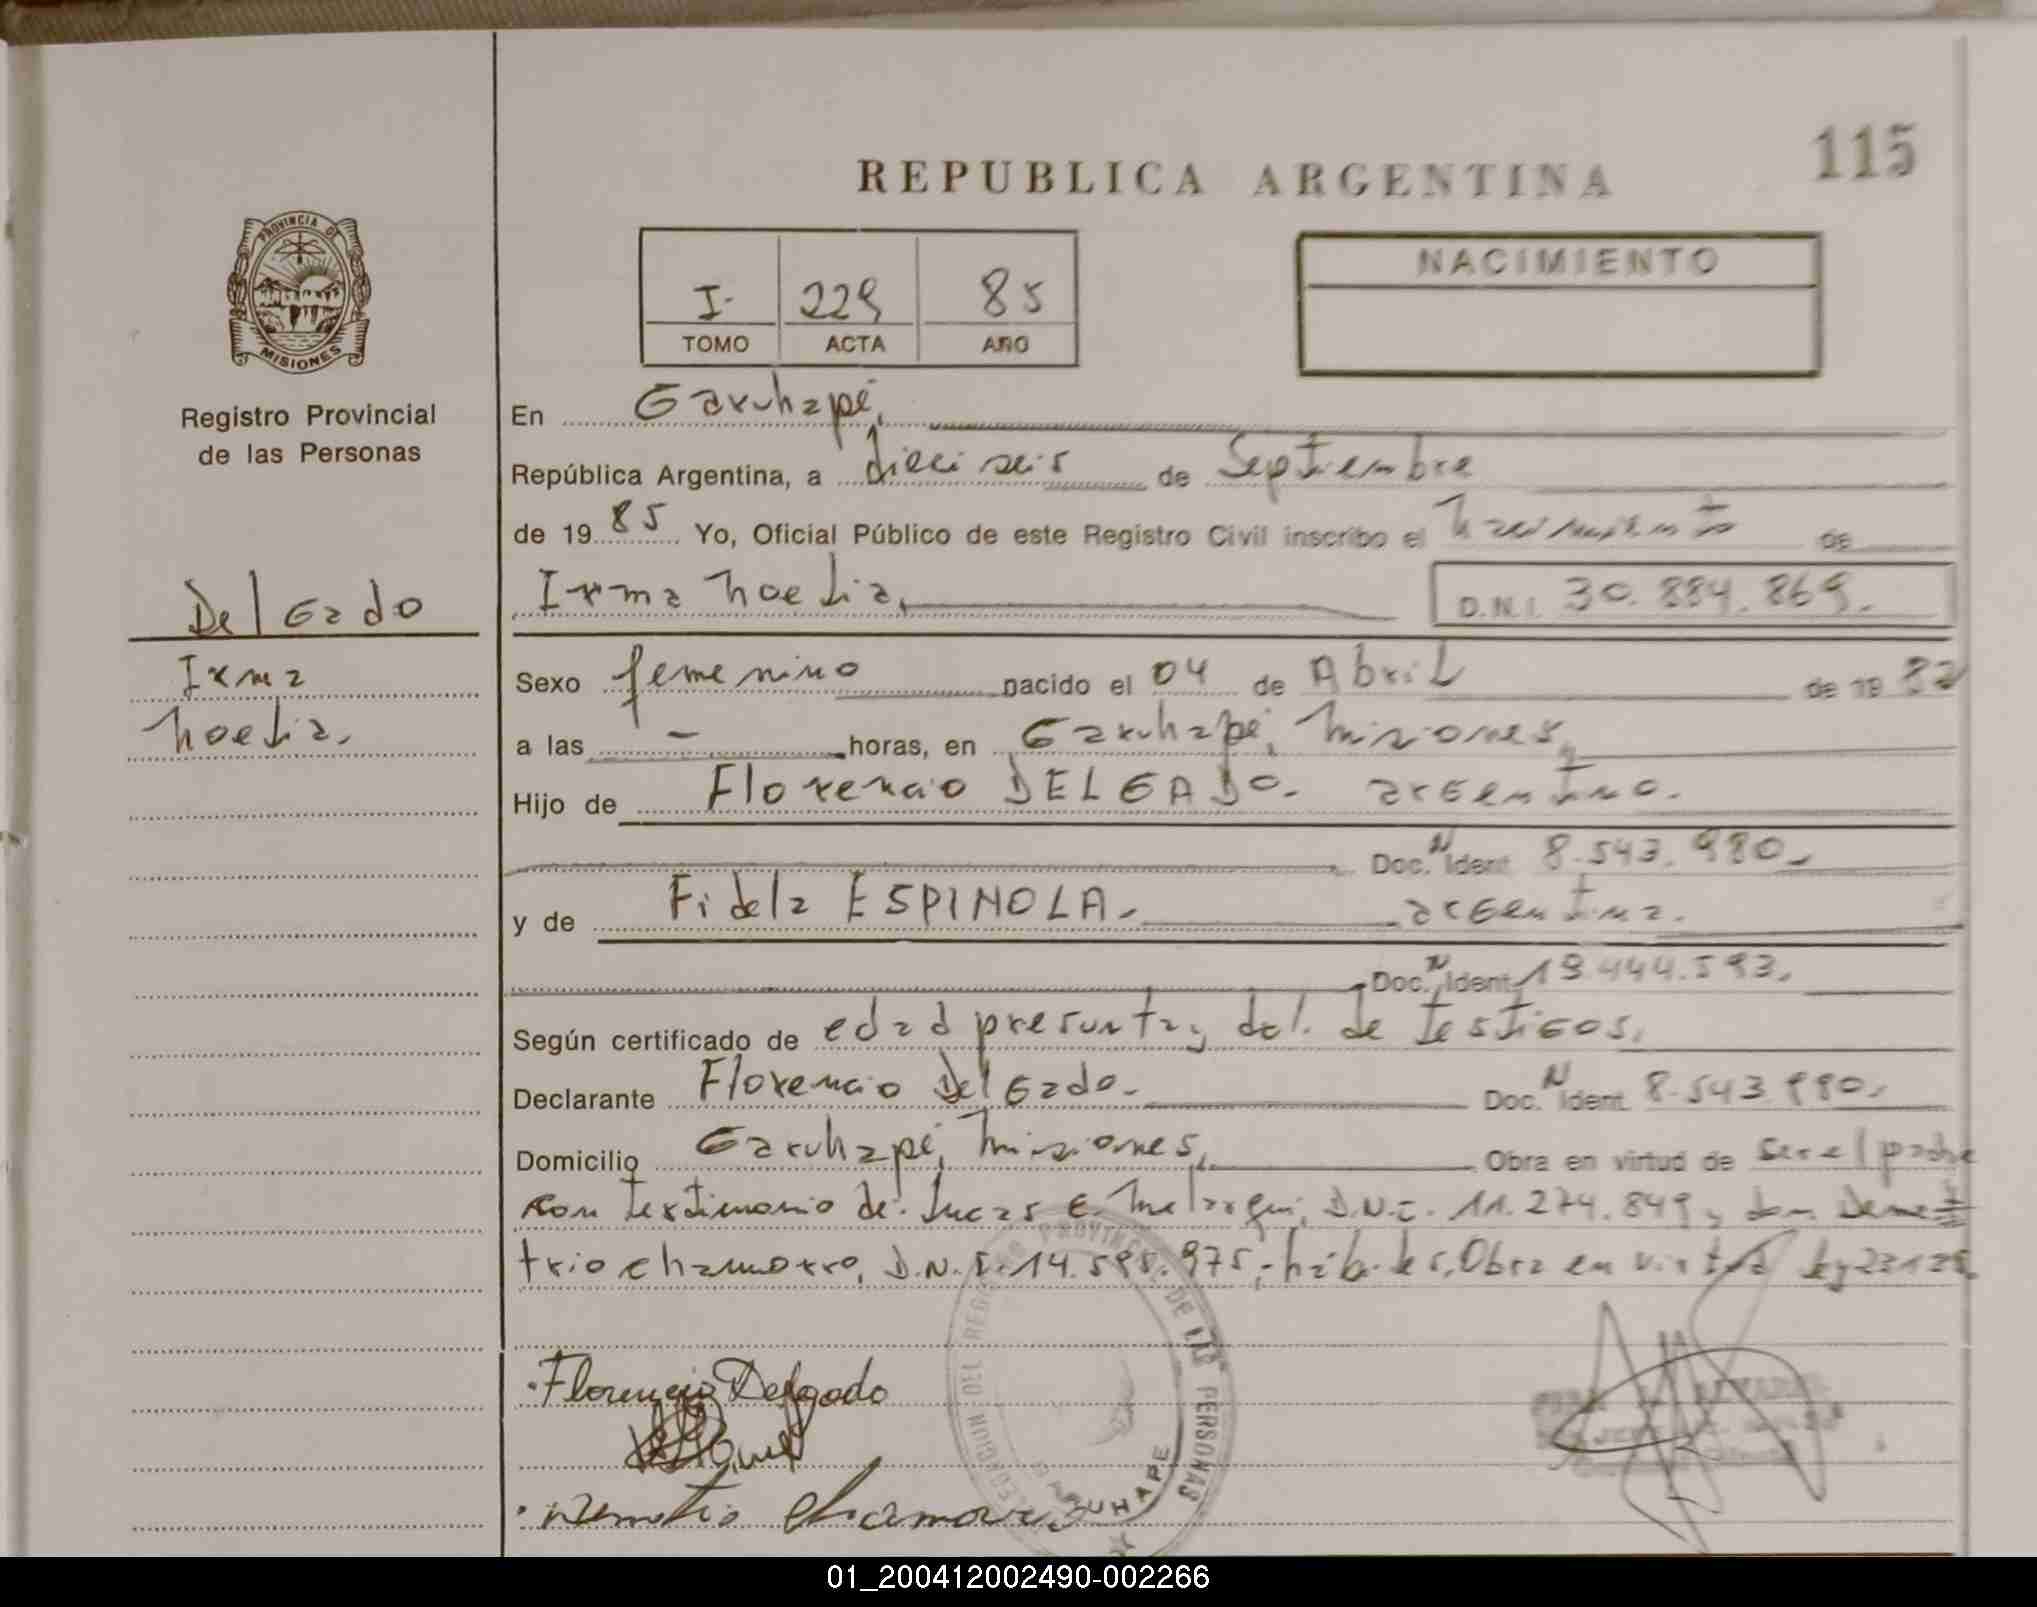 115
REPUBLICA ARGENTINA
PROVINCIA DE
MISIONES
Registro Provincial
de las Personas
I- 229 85
TOMO ACTA AÑO
NACIMIENTO
En Garuhapé,
República Argentina, a dieci seis de Septiembre
de 1985 Yo, Oficial Público de este Registro Civil inscribo el nacimiento de
Irma Noelia, D.N.I. 30.884.869.
Delgado
Irma
Noelia.
Sexo femenino nacido el 04 de Abril de 1982
a las - horas, en Garuhapé, Misiones,
Hijo de Florencio DELGADO. argentino.
Doc. N Ident 8.543.980.
y de Fidela ESPINOLA. argentina.
Doc. N Ident 19.444.593.
Según certificado de edad presunta, y del. de testigos,
Declarante Florencio Delgado. Doc. N Ident 8.543.980.
Domicilio Garuhapé, Misiones, Obra en virtud de ser el padre
con testimonio de: Lucas E. D.N.I. 11.274.849, y don Deme=
trio Chamorro, D.N.I. 14.595.975, hábiles, Obra en virtud ley 23128.
Florencio Delgado
Demetrio Chamorro
DEL REGISTRO PROVINCIAL DE LAS PERSONAS
GARUHAPE
01_200412002490-002266